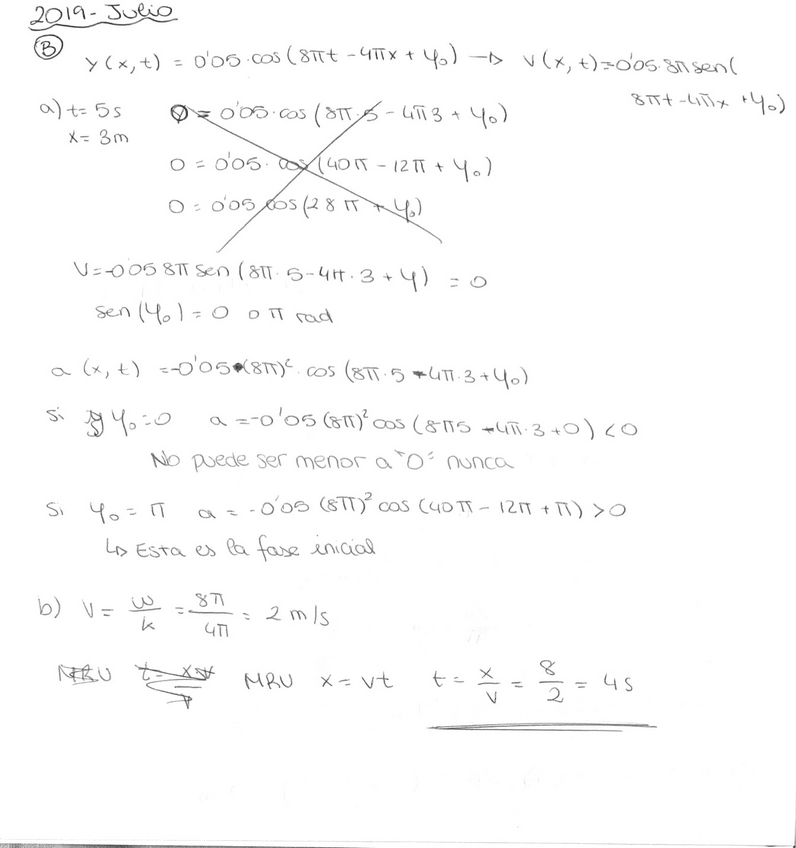 2019 - Julio
B
y(x,t) = 0'05·cos(8πt - 4πx + φ₀) → v(x,t)=0'05·8π sen(
8πt-4πx +φ₀)
a) t= 5s 0 = 0'05·cos(8π·5 - 4π3 + φ₀)
x= 3m
0 = 0'05· cos(40π - 12π + φ₀)
0 = 0'05 cos(28π + φ₀)
V=-0'05 8π sen(8π·5-4π·3+φ) = 0
sen(φ₀) = 0 o π rad
a (x,t) =-0'05·(8π)² · cos(8π·5 - 4π·3+φ₀)
Si φ₀=0 a=-0'05(8π)²cos(8π5 - 4π·3+0)<0
No puede ser menor a "0" nunca
Si φ₀ = π a = -0'05 (8π)² cos(40π - 12π + π) >0
↳ Esta es la fase inicial
b) V = ω/k = 8π/4π = 2 m/s
MRU MRU x = vt t = x/v = 8/2 = 4s